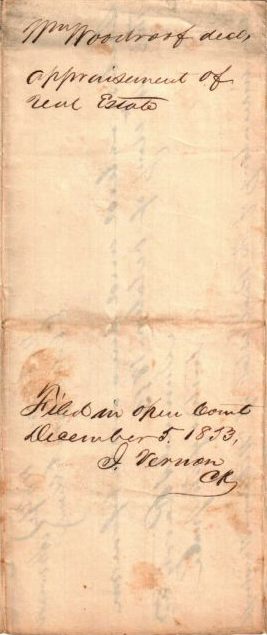 Wm Woodroof decd,
appraisement of
real Estate
Filed in open Court
December 5. 1853,
J. Vernon
Ck